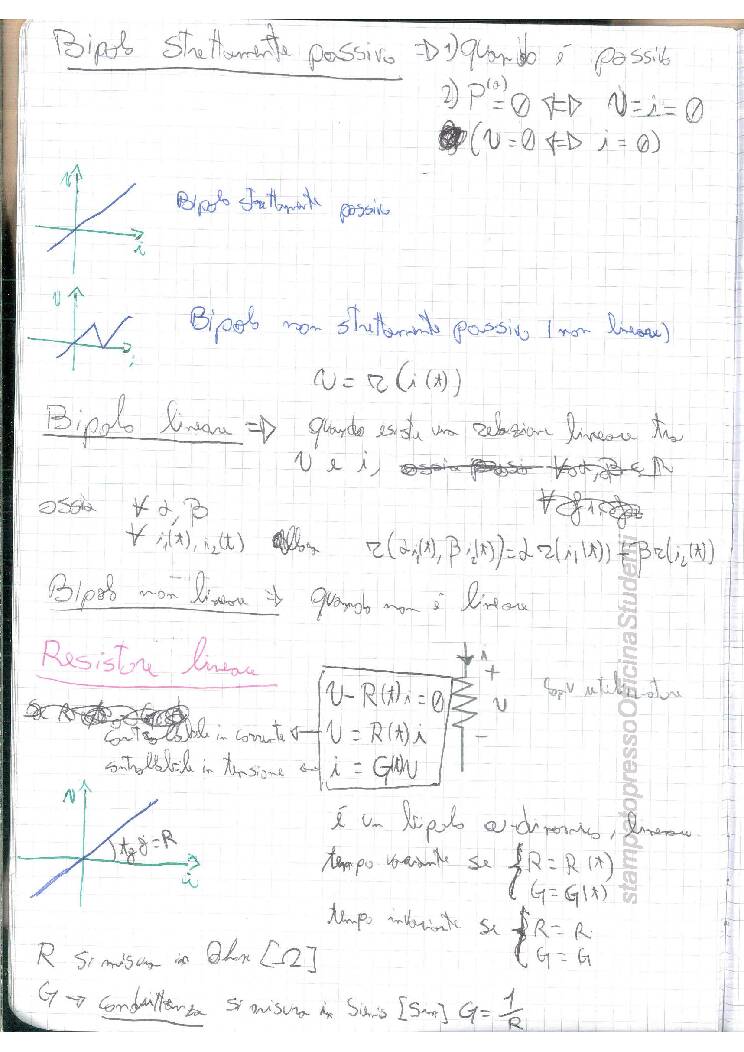 Bipolo strettamente passivo => 1) quando è passivo
2) P^(a) = 0 <=> v = i = 0
(v = 0 <=> i = 0)
v
i
Bipolo strettamente passivo
v
i
Bipolo non strettamente passivo (non lineare)
v = r(i(t))
Bipolo lineare => quando esiste una relazione lineare tra
v e i,
ossia ∀ α, β
∀ i₁(t), i₂(t) allora r(α i₁(t), β i₂(t)) = α r(i₁(t)) + β r(i₂(t))
Bipolo non lineare => quando non è lineare
Resistore lineare
i
+
v
-
conv utilizzatore
v - R(t) i = 0
controllabile in corrente v = R(t) i
controllabile in tensione i = G(t) v
v
i
tg γ = R
è un bipolo a-dinamico, lineare
tempo variante se { R = R(t)
G = G(t)
tempo invariante se { R = R
G = G
R si misura in Ohm [Ω]
G → conduttanza si misura in Siemens [Sm] G = 1/R
stampatopressoOfficinaStudenti